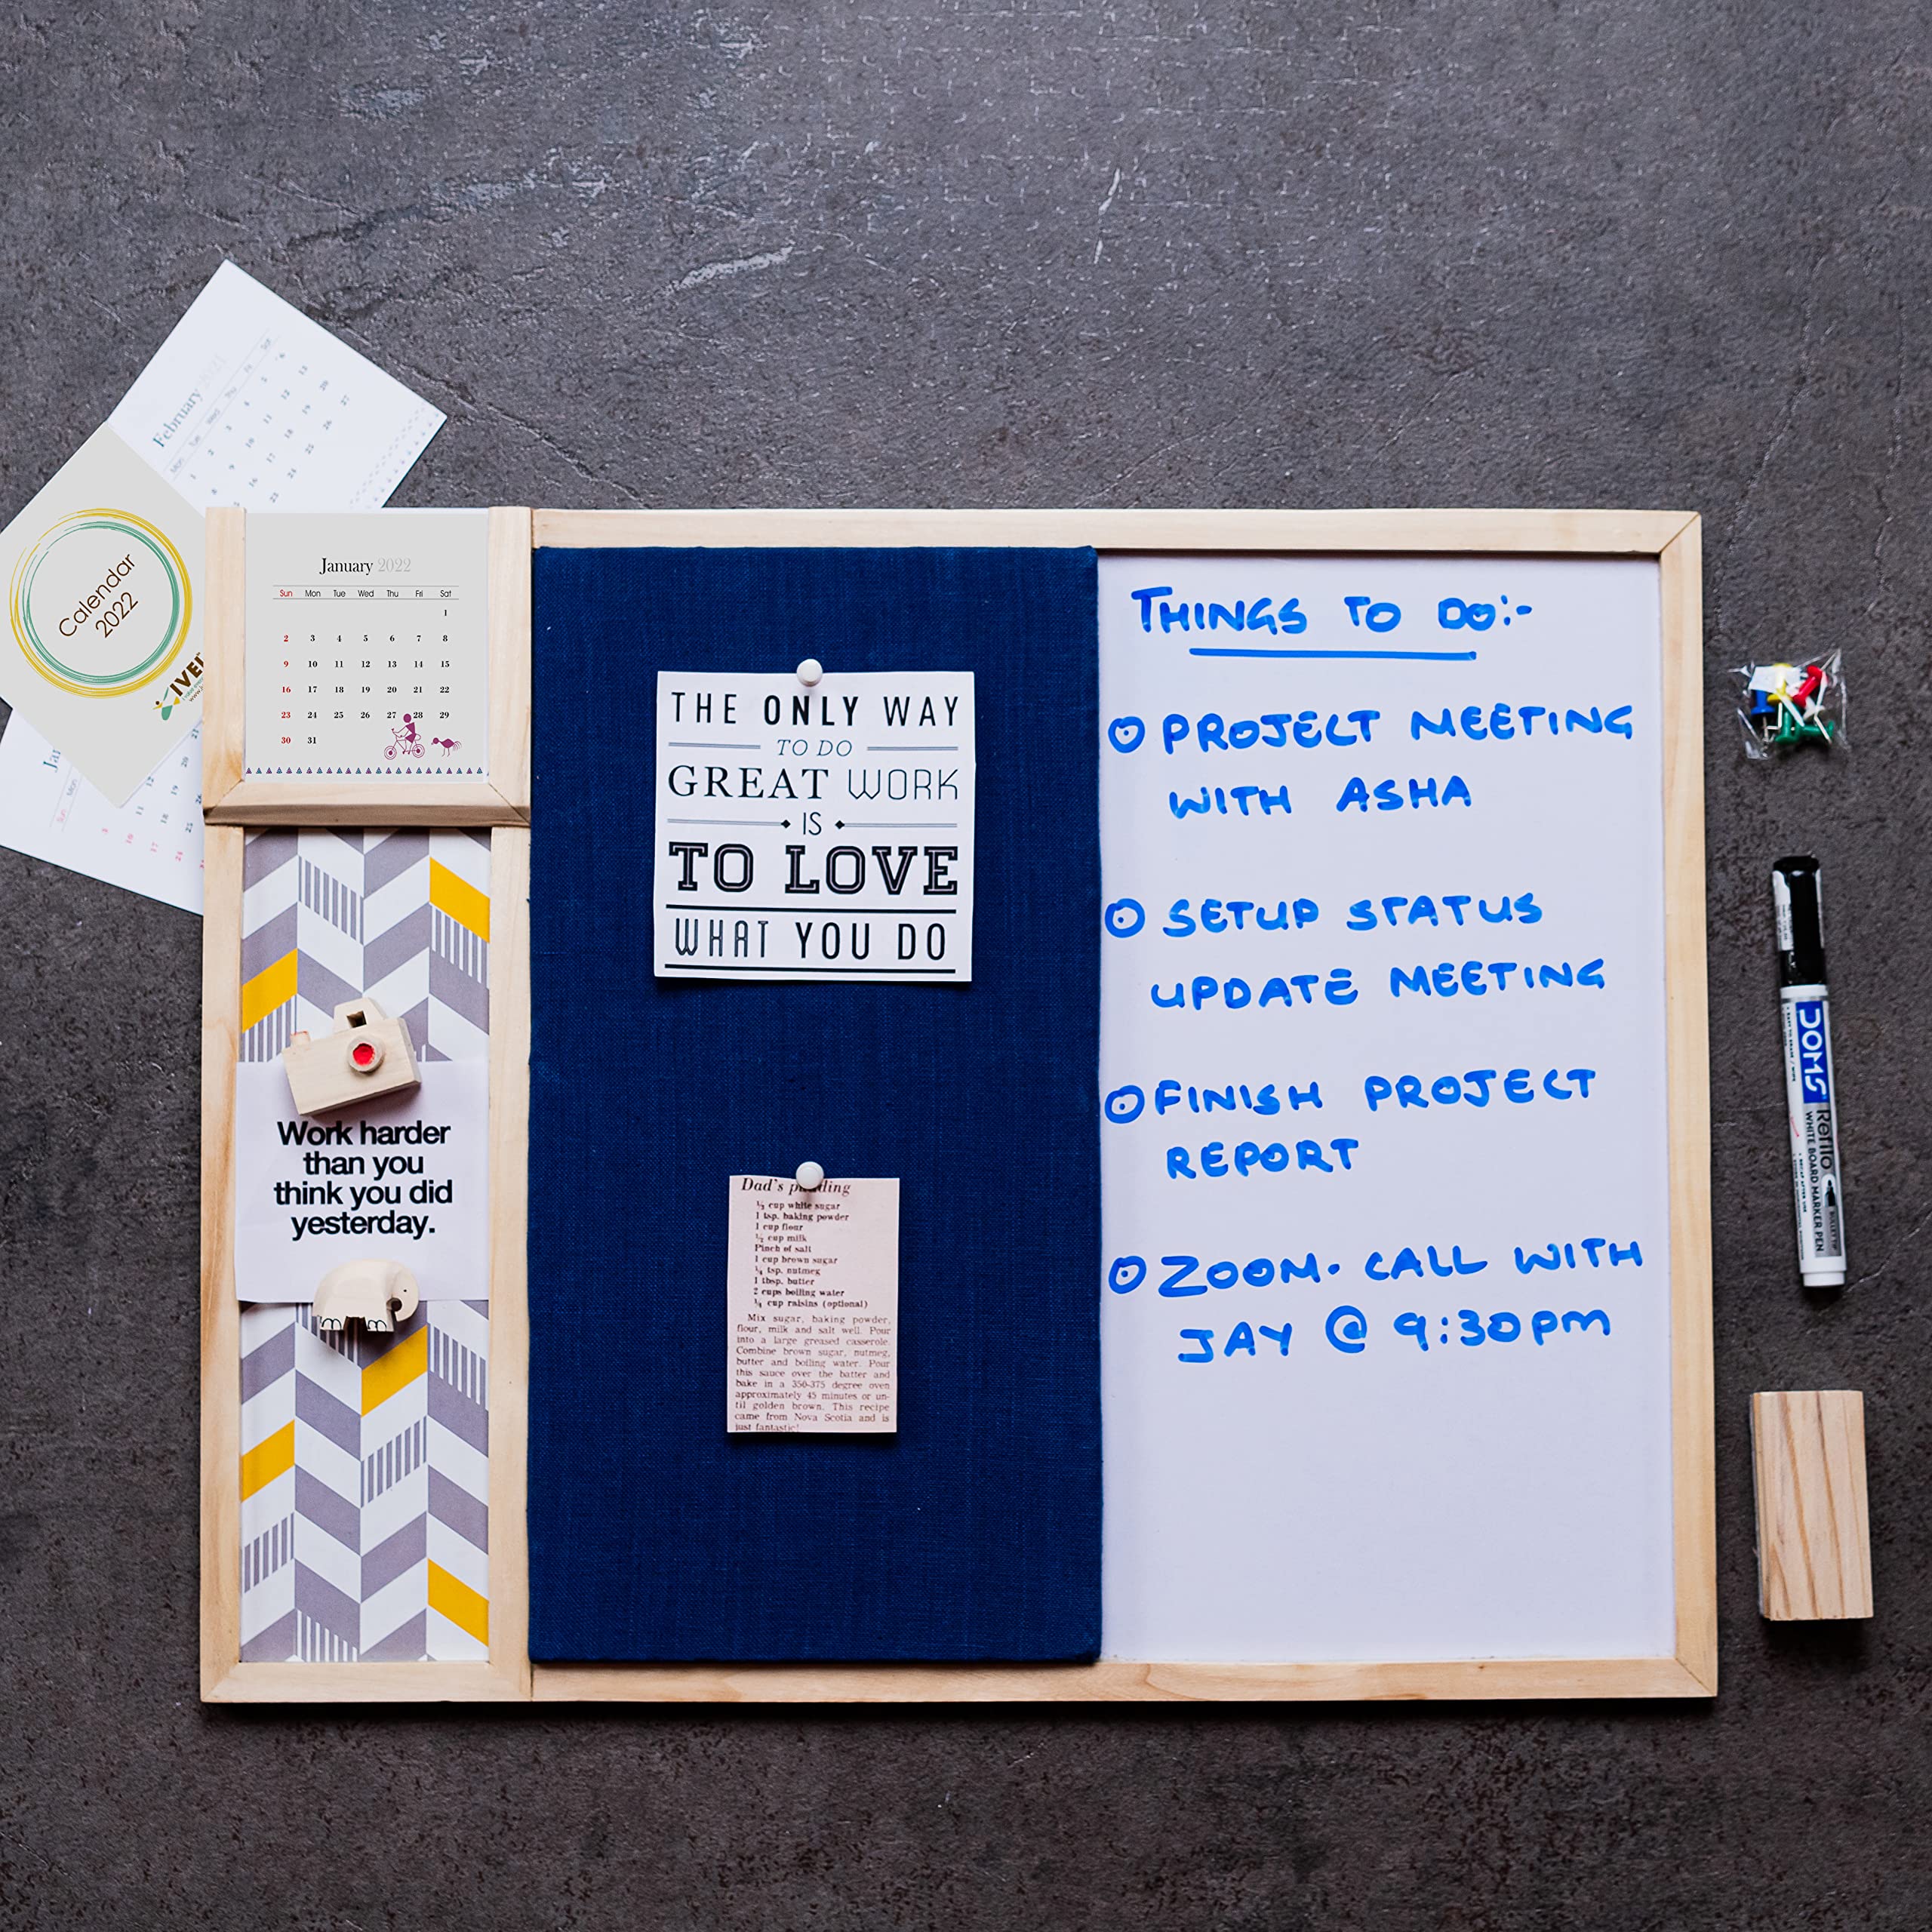 February 2021
Calendar
2022
January 2022
Sun Mon Tue Wed Thu Fri Sat
1
2 3 4 5 6 7 8
9 10 11 12 13 14 15
16 17 18 19 20 21 22
23 24 25 26 27 28 29
30 31
Work harder
than you
think you did
yesterday.
THE ONLY WAY
TO DO
GREAT WORK
IS
TO LOVE
WHAT YOU DO
Dad's
½ cup white sugar
1 tsp. baking powder
1 cup flour
½ cup milk
Pinch of salt
1 cup brown sugar
¼ tsp. nutmeg
1 tbsp. butter
2 cups boiling water
¼ cup raisins (optional)
Mix sugar, baking powder,
flour, milk and salt well. Pour
into a large greased casserole.
Combine brown sugar, nutmeg,
butter and boiling water. Pour
this sauce over the batter and
bake in a 350-375 degree oven
approximately 45 minutes or un-
til golden brown. This recipe
came from Nova Scotia and is
just fantastic!
THINGS TO DO:-
PROJECT MEETING
WITH ASHA
SETUP STATUS
UPDATE MEETING
FINISH PROJECT
REPORT
ZOOM. CALL WITH
JAY @ 9:30pm
DOMS
Refilo
WHITE BOARD MARKER PEN